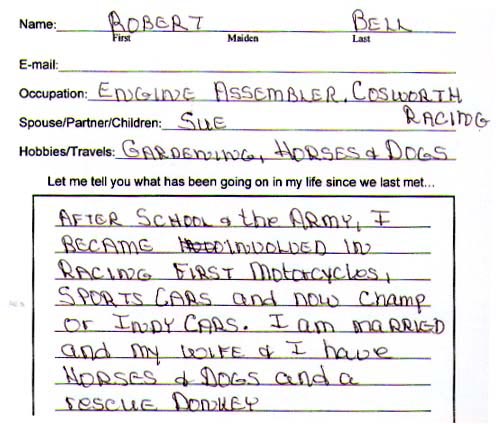 Name: ROBERT BELL
First Maiden Last
E-mail:
Occupation: ENGINE ASSEMBLER, COSWORTH
RACING
Spouse/Partner/Children: SUE
Hobbies/Travels: GARDENING, HORSES & DOGS
Let me tell you what has been going on in my life since we last met...
AFTER SCHOOL & the ARMY, I
BECAME INVOLVED IN
RACING FIRST MOTORCYCLES,
SPORTS CARS and now Champ
or INDY CARS. I am MARRIED
and MY WIFE & I have
HORSES & DOGS and a
rescue DONKEY